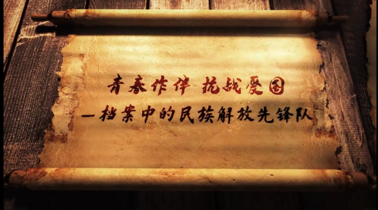 青春作伴 抗战爱国
—档案中的民族解放先锋队